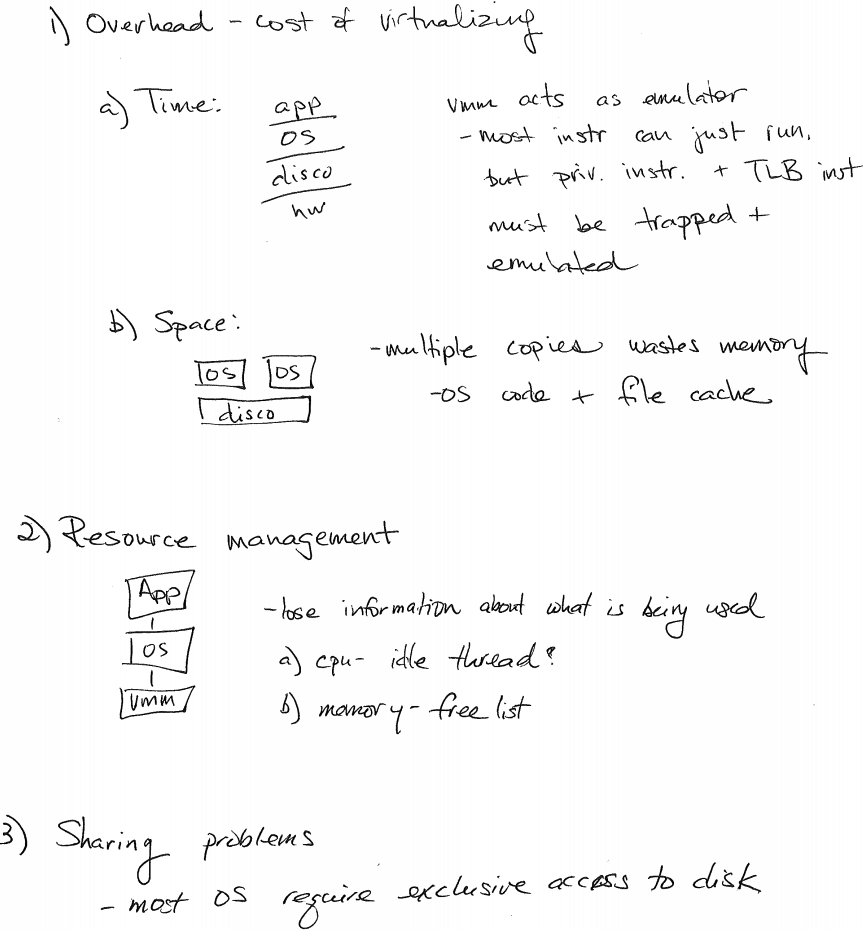 1) Overhead - cost of virtualizing
a) Time:
app
OS
disco
hw
vmm acts as emulator
- most instr can just run,
but priv. instr. + TLB inst
must be trapped +
emulated
b) Space:
OS OS
disco
- multiple copies wastes memory
- OS code + file cache
2) Resource management
App
OS
Vmm
- lose information about what is being used
a) cpu - idle thread?
b) memory - free list
3) Sharing problems
- most OS require exclusive access to disk